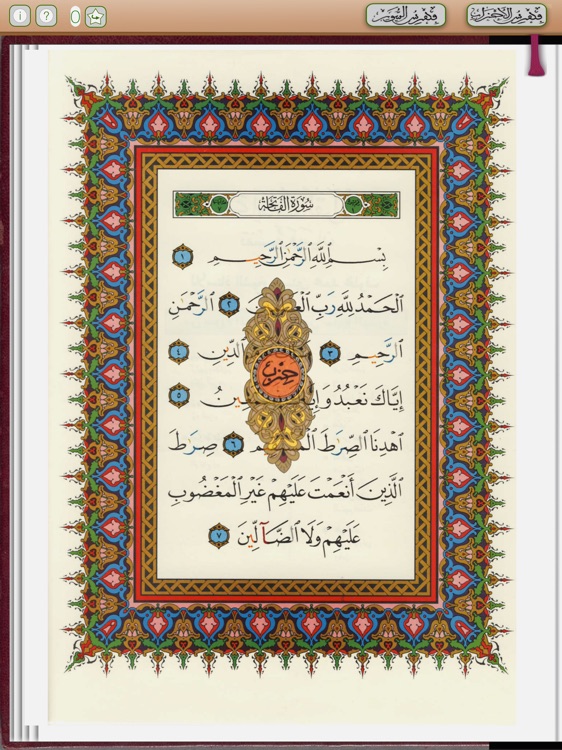 فهرس السور فهرس الأحزاب
سُورَةُ الفَاتِحَةِ
بِسْمِ اللَّهِ الرَّحْمَٰنِ الرَّحِيمِ ١
الْحَمْدُ لِلَّهِ رَبِّ ٢ الرَّحْمَٰنِ
الرَّحِيمِ ٣ الدِّينِ ٤
حزب
إِيَّاكَ نَعْبُدُ ٥
اهْدِنَا الصِّرَٰطَ ٦ صِرَٰطَ
الَّذِينَ أَنْعَمْتَ عَلَيْهِمْ غَيْرِ الْمَغْضُوبِ
عَلَيْهِمْ وَلَا الضَّآلِّينَ ٧